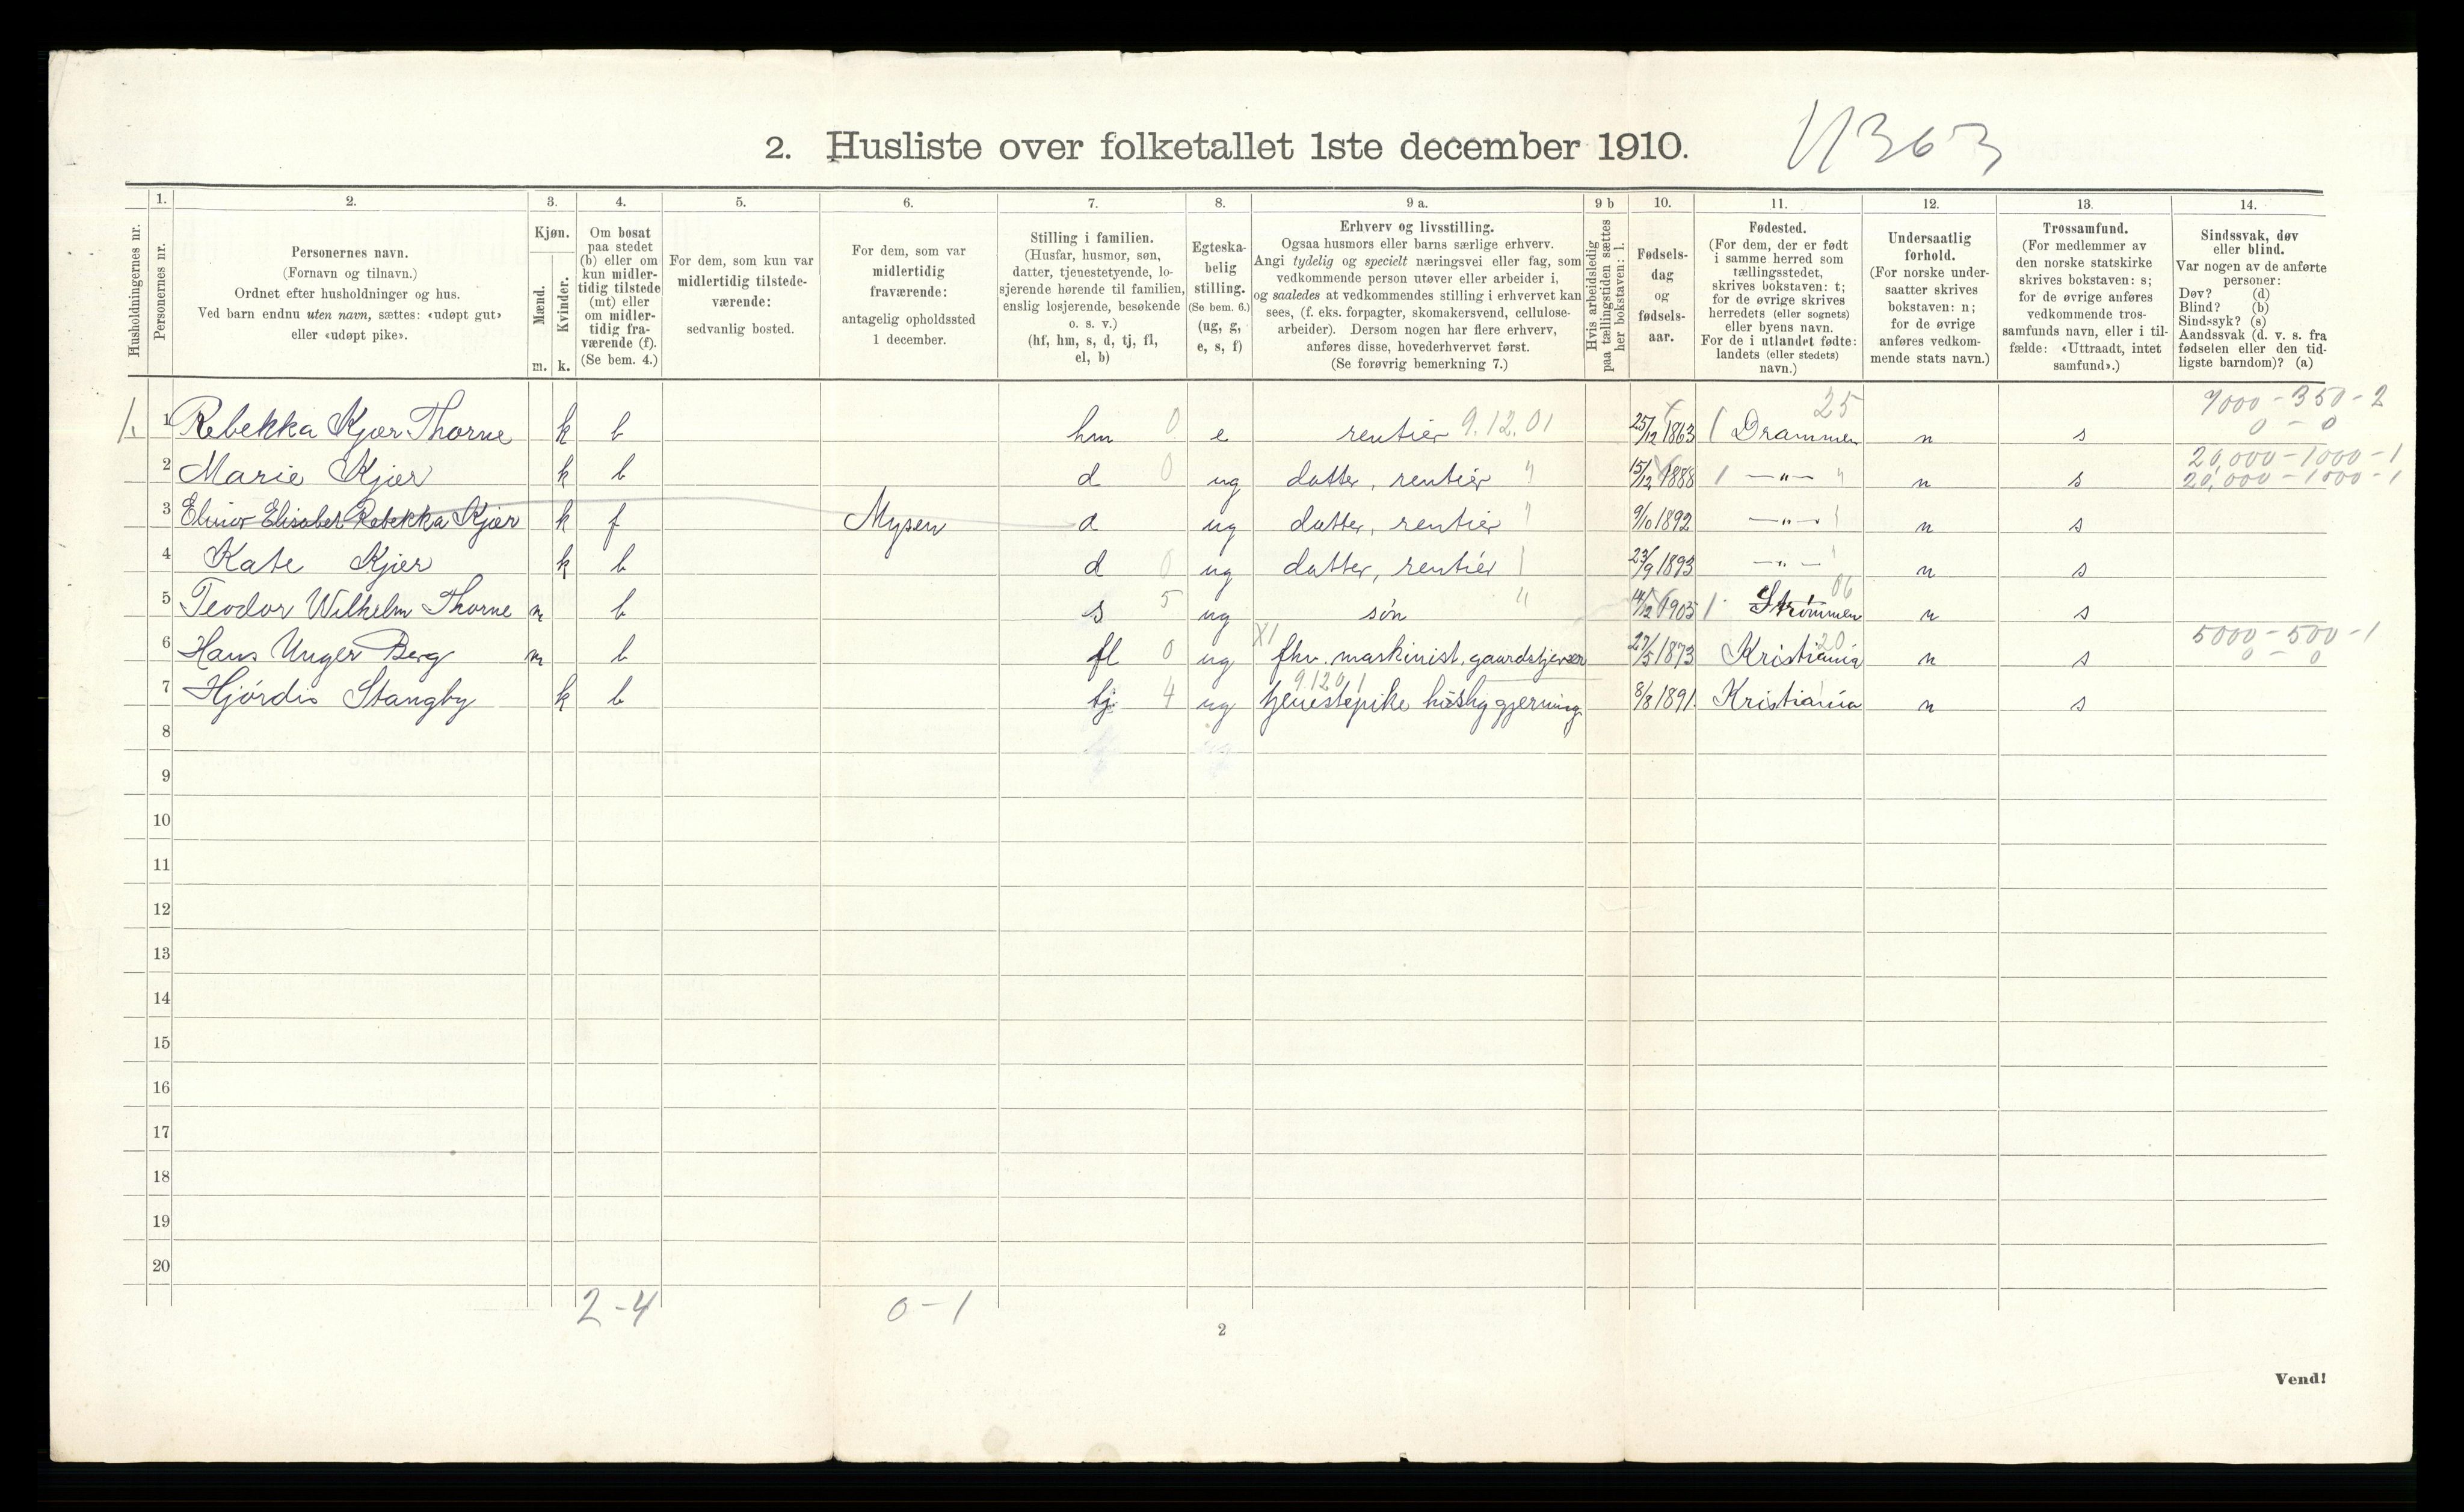 2. Husliste over folketallet 1ste december 1910.
Husholdningernes nr.
1. Personernes nr.
2. Personernes navn. (Fornavn og tilnavn.) Ordnet efter husholdninger og hus. Ved barn endnu uten navn, sættes: «udøpt gut» eller «udøpt pike».
3. Kjøn. Mænd. m. Kvinder. k.
4. Om bosat paa stedet (b) eller om kun midlertidig tilstede (mt) eller om midlertidig fraværende (f). (Se bem. 4.)
5. For dem, som kun var midlertidig tilstedeværende: sedvanlig bosted.
6. For dem, som var midlertidig fraværende: antagelig opholdssted 1 december.
7. Stilling i familien. (Husfar, husmor, søn, datter, tjenestetyende, losjerende hørende til familien, enslig losjerende, besøkende o. s. v.) (hf, hm, s, d, tj, fl, el, b)
8. Egteskabelig stilling. (Se bem. 6.) (ug, g, e, s, f)
9 a. Erhverv og livsstilling. Ogsaa husmors eller barns særlige erhverv. Angi tydelig og specielt næringsvei eller fag, som vedkommende person utøver eller arbeider i, og saaledes at vedkommendes stilling i erhvervet kan sees, (f. eks. forpagter, skomakersvend, cellulosearbeider). Dersom nogen har flere erhverv, anføres disse, hovederhvervet først. (Se forøvrig bemerkning 7.)
9 b Hvis arbeidsledig paa tællingstiden sættes her bokstaven: l.
10. Fødselsdag og fødselsaar.
11. Fødested. (For dem, der er født i samme herred som tællingsstedet, skrives bokstaven: t; for de øvrige skrives herredets (eller sognets) eller byens navn. For de i utlandet fødte: landets (eller stedets) navn.)
12. Undersaatlig forhold. (For norske undersaatter skrives bokstaven: n; for de øvrige anføres vedkommende stats navn.)
13. Trossamfund. (For medlemmer av den norske statskirke skrives bokstaven: s; for de øvrige anføres vedkommende trossamfunds navn, eller i tilfælde: «Uttraadt, intet samfund».)
14. Sindssvak, døv eller blind. Var nogen av de anførte personer: Døv? (d) Blind? (b) Sindssyk? (s) Aandssvak (d. v. s. fra fødselen eller den tidligste barndom)? (a)
25 7000 - 350 - 2
1. 1 Rebekka Kjær Thorne k b hm 0 e rentier 9.12.01 25/12 1863 Drammen n s 0 - 0
20,000 - 1000 - 1
2 Marie Kjær k b d 0 ug datter, rentier " 15/12 1888 — „ — n s 20,000 - 1000 - 1
3 Elinor Elisabet Rebekka Kjær k f Mysen d ug datter, rentier " 9/10 1892 — „ — n s
4 Kate Kjær k b d 0 ug datter, rentiér 23/9 1893 — „ — n s
06
5 Teodor Wilhelm Thorne m b s 5 ug søn " 14/12 1905 Strømmen n s
20 5000 - 500 - 1
6 Hans Unger Berg m b fl 0 ug X1 fhv. maskinist, gaardstjener 27/5 1873 Kristiania n s 0 - 0
9.12.01
7 Hjørdis Stangby k b tj 4 ug tjenestepike huslig gjerning 8/8 1891 Kristiania n s
8
9
10
11
12
13
14
15
16
17
18
19
20
2 - 4 0 - 1
2
Vend!